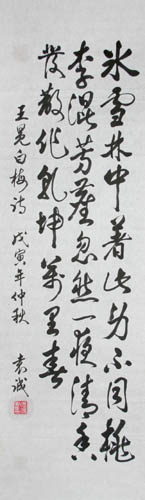 冰雪林中著此身不同桃
李混芳塵忽然一夜清香
發散作乾坤萬里春
王冕白梅诗 戊寅年仲秋 袁诚